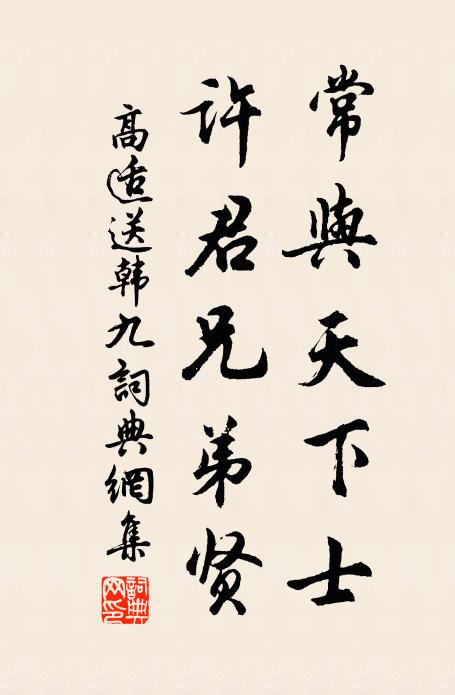 常與天下士
許君兄弟贤
高适送韩九詞典網集
詞典网印